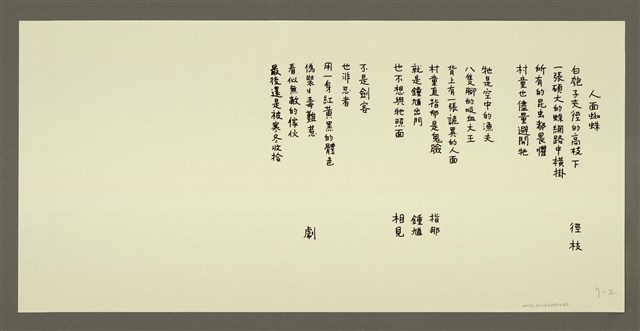 人面蜘蛛
白匏子夾徑的高枝下
一張碩大的蛛網路中橫掛
所有的昆虫都畏懼
村童也儘量避開牠
牠是空中的漁夫
八隻腳的吸血大王
背上有一張詭異的人面
村童直指那是鬼臉
就是鍾馗出門
也不想與牠照面
不是劍客
也非忍者
用一身紅黃黑的體色
偽裝出毒難惹
看似無敵的傢伙
最後還是被寒冬收拾
徑枝
指那
鍾馗
相見
劇
7-2